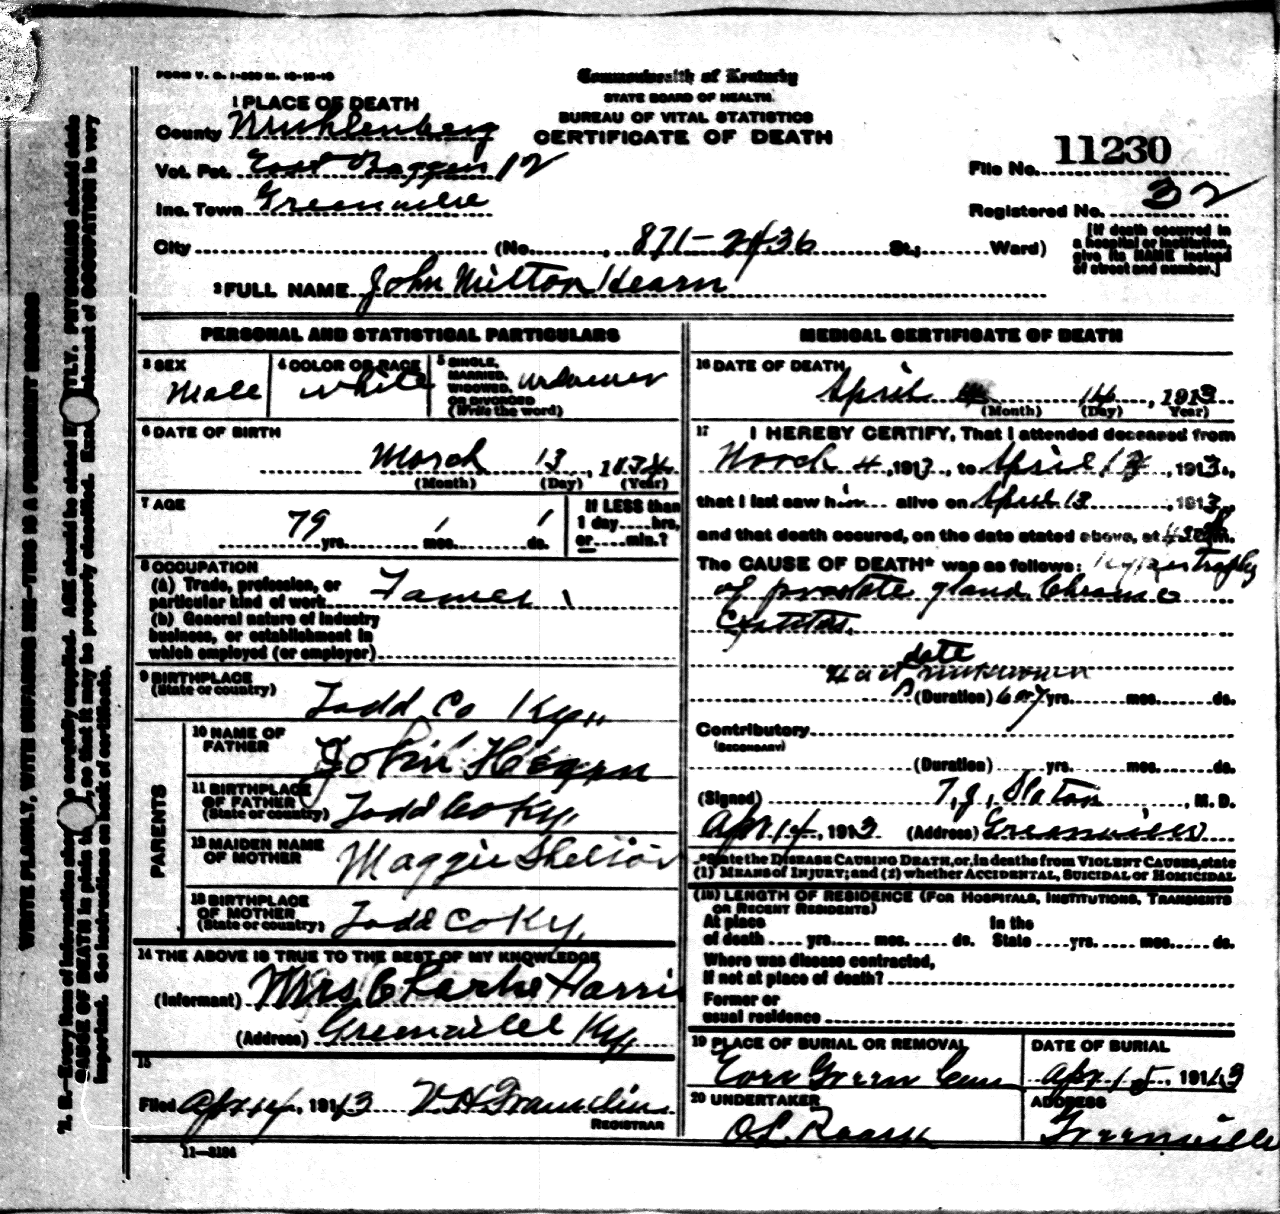 FORM V. S. 1-
Commonwealth of Kentucky
STATE BOARD OF HEALTH.
BUREAU OF VITAL STATISTICS
CERTIFICATE OF DEATH
1 PLACE OF DEATH
County Muhlenberg
Vot. Pct. East 12
Inc. Town Greenville
City (No. , 871-2436 St.; Ward)
File No. 11230
Registered No. 32
[If death occurred in
a hospital or institution,
give its NAME instead
of street and number.]
2 FULL NAME John Milton Hearn
PERSONAL AND STATISTICAL PARTICULARS
3 SEX
Male
4 COLOR OR RACE
white
5 SINGLE,
MARRIED,
WIDOWED,
OR DIVORCED
(Write the word)
widower
6 DATE OF BIRTH
March 13, 1834
(Month) (Day) (Year)
7 AGE
79 yrs. 1 mos. 1 ds.
If LESS than
1 day....hrs,
or....min.?
8 OCCUPATION
(a) Trade, profession, or
particular kind of work Farmer
(b) General nature of industry
business, or establishment in
which employed (or employer)
9 BIRTHPLACE
(State or country)
Todd Co Ky,
PARENTS
10 NAME OF
FATHER
John Hearn
11 BIRTHPLACE
OF FATHER
(State or country)
Todd Co Ky,
12 MAIDEN NAME
OF MOTHER
Maggie Shelton
13 BIRTHPLACE
OF MOTHER
(State or country)
Todd Co Ky,
14 THE ABOVE IS TRUE TO THE BEST OF MY KNOWLEDGE
(Informant) Mrs. Harris
(Address) Greenville Ky,
15
Filed Apr 14, 1913 Franklin
REGISTRAR
11-3184
MEDICAL CERTIFICATE OF DEATH
16 DATE OF DEATH
April 14, 1913
(Month) (Day) (Year)
17 I HEREBY CERTIFY, That I attended deceased from
March 4, 1913, to April 13, 1913,
that I last saw him alive on April 13, 1913,
and that death occured, on the date stated above, at m.
The CAUSE OF DEATH* was as follows: Hypertrophy
of prostate gland Chronic
Cystitis.
date
unknown
(Duration) 6 or 7 yrs. mos. ds.
Contributory
(SECONDARY)
(Duration) yrs. mos. ds.
(Signed) T. J. Slaton, M. D.
Apr 14, 1913 (Address) Greenville
*State the DISEASE CAUSING DEATH, or, in deaths from VIOLENT CAUSES, state
(1) MEANS of INJURY; and (2) whether ACCIDENTAL, SUICIDAL or HOMICIDAL
(18) LENGTH OF RESIDENCE (FOR HOSPITALS, INSTITUTIONS, TRANSIENTS
OR RECENT RESIDENTS)
At place
of death .... yrs. .... mos. .... ds.
In the
State .... yrs. .... mos. .... ds.
Where was disease contracted,
if not at place of death?
Former or
usual residence
19 PLACE OF BURIAL OR REMOVAL
Ever Green Cem
DATE OF BURIAL
Apr 15, 1913
20 UNDERTAKER
O L Roark
ADDRESS
Greenville
WRITE PLAINLY, WITH UNFADING INK—THIS IS A PERMANENT RECORD
N. B.—Every item of information should be carefully supplied. AGE should be stated EXACTLY. PHYSICIANS should state
CAUSE OF DEATH in plain terms, so that it may be properly classified. Exact statement of OCCUPATION is very
important. See instructions on back of certificate.